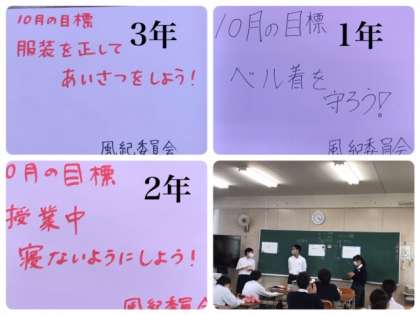 10月の目標
3年
服装を正して
あいさつをしよう!
風紀委員会
10月の目標
1年
ベル着を
守ろう!
風紀委員会
0月の目標
2年
授業中
寝ないようにしよう!
風紀委員会